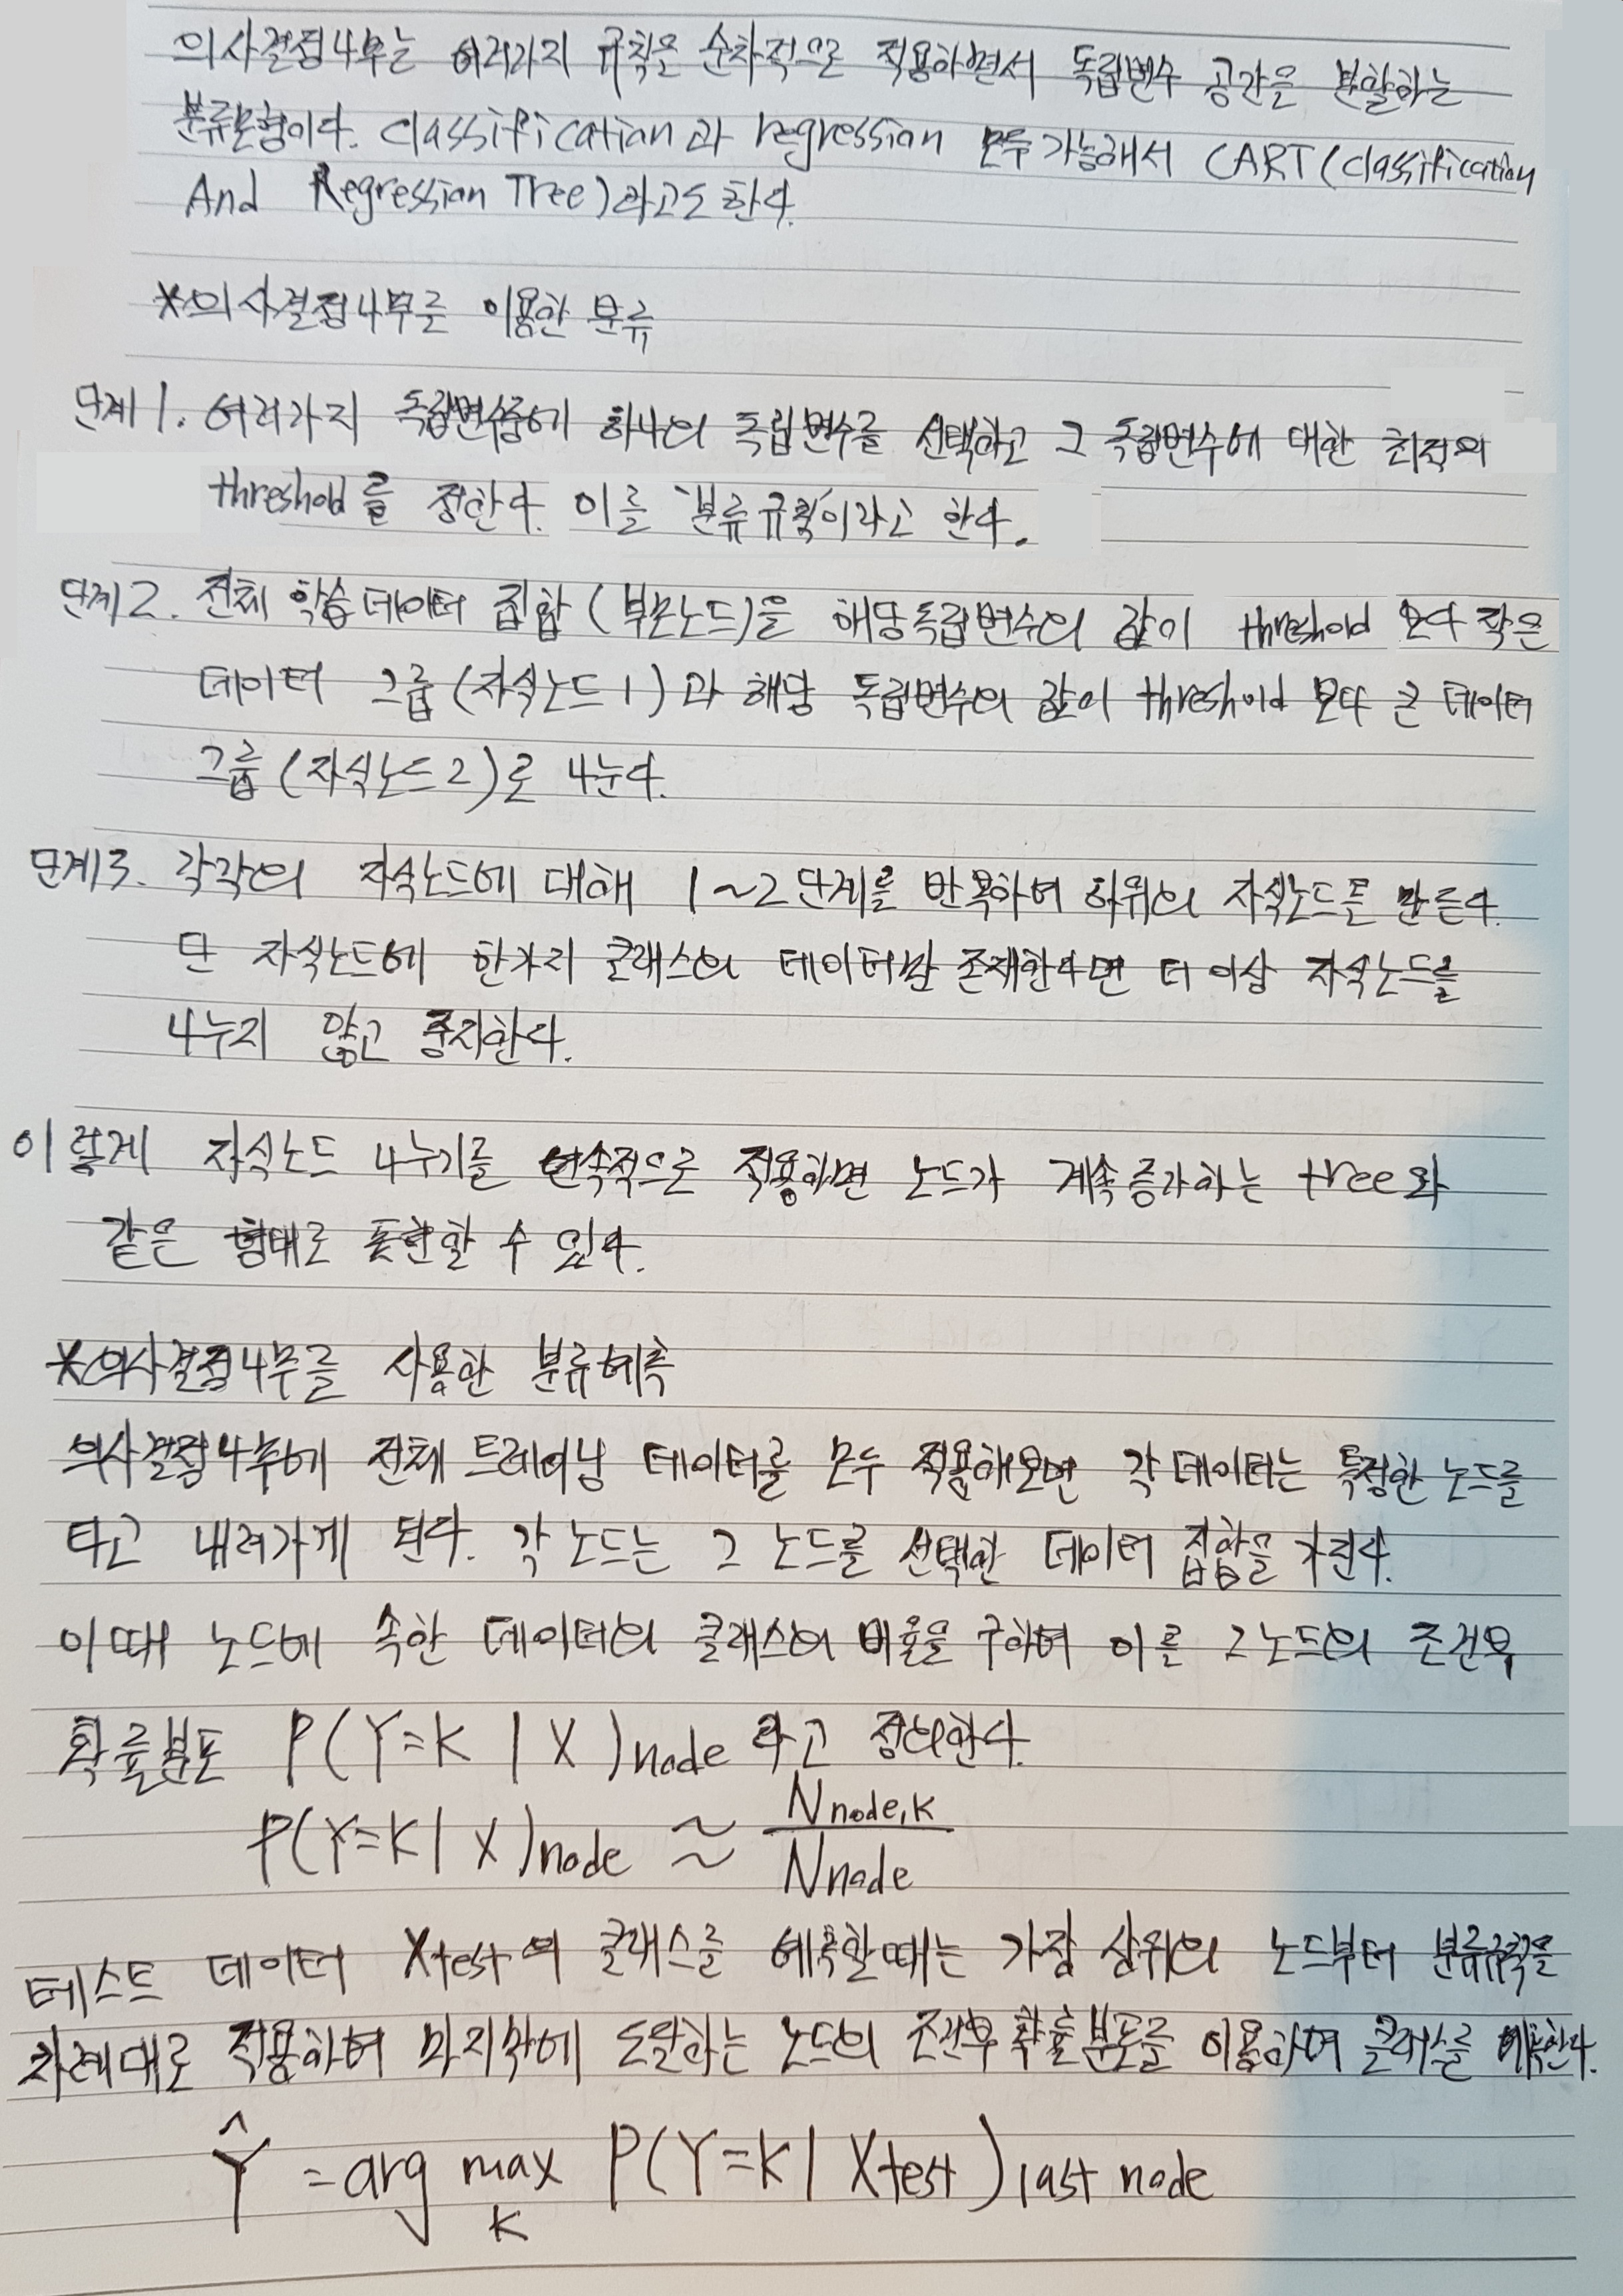 의사결정나무는 여러가지 규칙을 순차적으로 적용하면서 독립변수 공간을 분할하는
분류모형이다. classification과 regression 모두 가능해서 CART(classification
And Regression Tree)라고도 한다.
*의사결정나무를 이용한 분류
단계1. 여러가지 독립변수중에 하나의 독립변수를 선택하고 그 독립변수에 대한 최적의
threshold를 정한다. 이를 '분류규칙'이라고 한다.
단계2. 전체 학습데이터 집합(부모노드)을 해당독립변수의 값이 threshold 보다 작은
데이터 그룹(자식노드1)과 해당 독립변수의 값이 threshold 보다 큰 데이터
그룹(자식노드2)로 나눈다.
단계3. 각각의 자식노드에 대해 1~2단계를 반복하여 하위의 자식노드를 만든다.
단 자식노드에 한가지 클래스의 데이터만 존재한다면 더 이상 자식노드를
나누지 않고 중지한다.
이렇게 자식노드 나누기를 연속적으로 적용하면 노드가 계속증가하는 tree와
같은 형태로 표현할 수 있다.
*의사결정나무를 사용한 분류예측
의사결정나무에 전체 트레이닝 데이터를 모두 적용해보면 각 데이터는 특정한 노드를
타고 내려가게 된다. 각 노드는 그 노드를 선택한 데이터 집합을 가진다.
이때 노드에 속한 데이터의 클래스의 비율을 구하여 이를 그 노드의 조건부
확률분포 P(Y=K | X)node 라고 정의한다.
P(Y=K | X)node ≈ Nnode,K / Nnode
테스트 데이터 Xtest의 클래스를 예측할때는 가장 상위의 노드부터 분류규칙을
차례대로 적용하여 마지막에 도달하는 노드의 조건부 확률분포를 이용하여 클래스를 예측한다.
Ŷ = arg max K P(Y=K | Xtest)last node